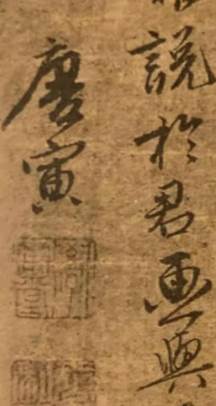 說於君画與
唐寅